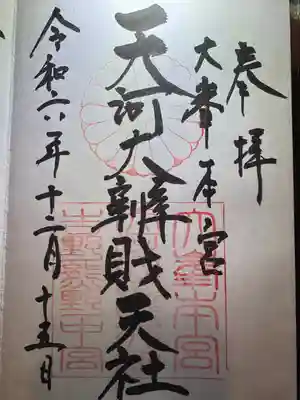 奉拝
大峯本宮
天河大辨財天社
令和六年十二月十五日
大峯本宮